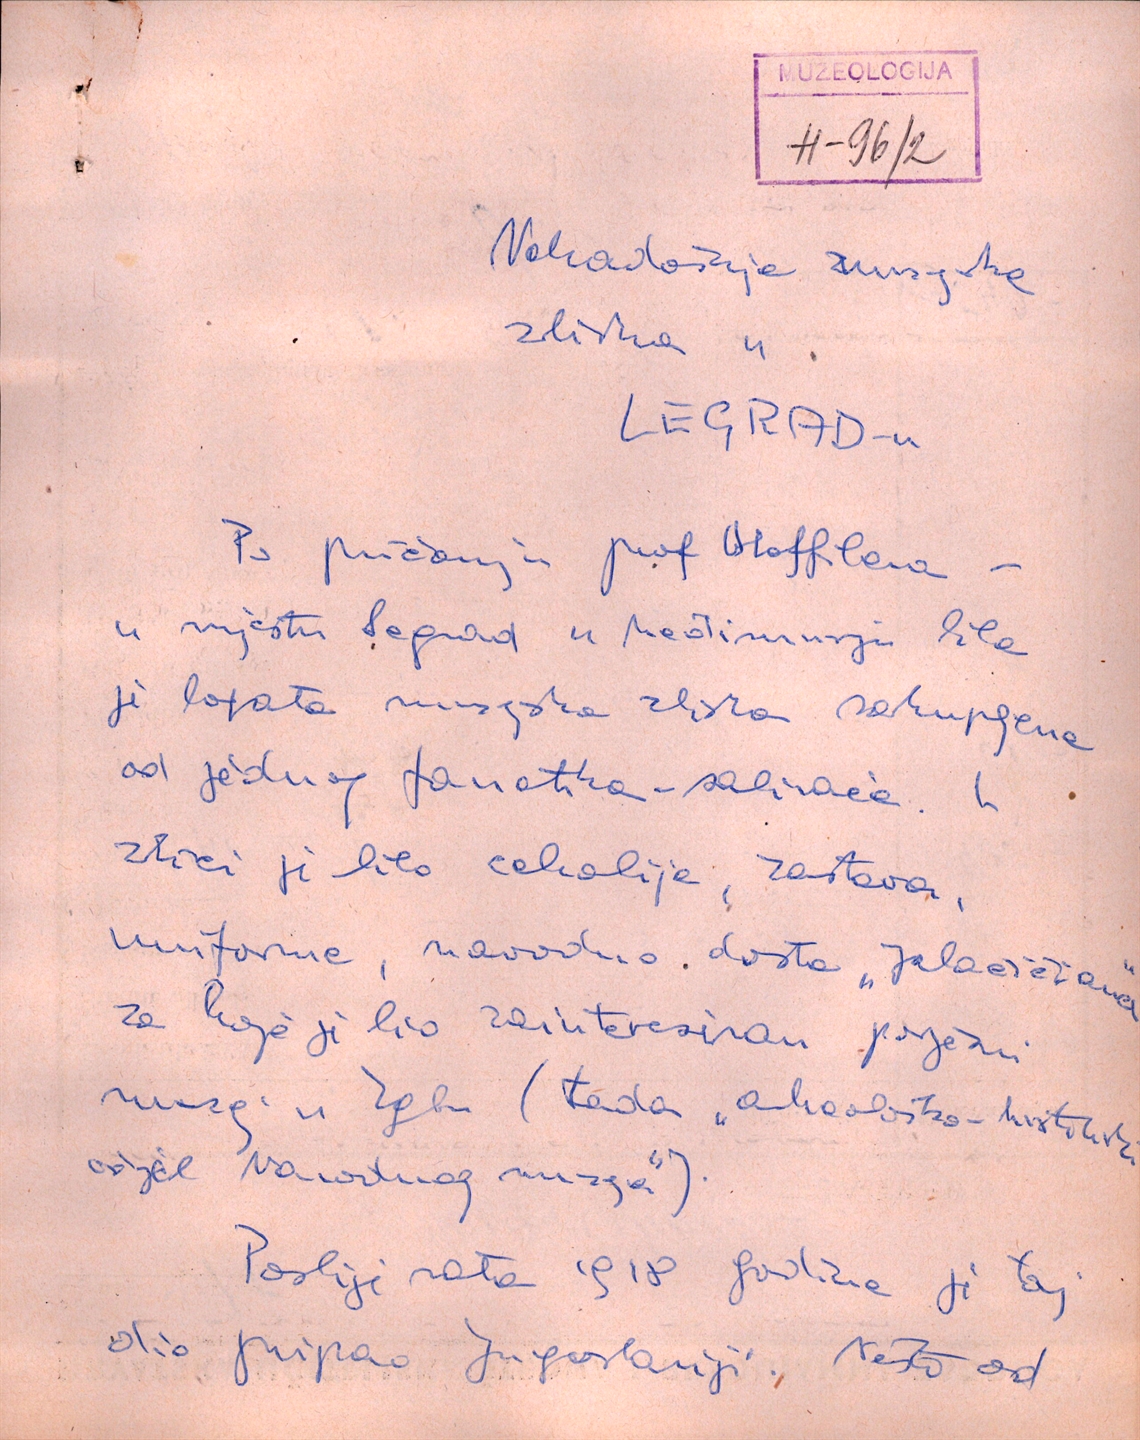 MUZEOLOGIJA
H-96/2
Nekadašnja muzejska
zbirka u
LEGRAD-u
Po pričanju prof Hoffilera –
u mjestu Legrad u Međimurju bila
je bogata muzejska zbirka sakupljena
od jednog fanatika-sabirača. U
zbirci je bilo cehalija, zastava,
uniforme, navodno dosta „Jelačićana"
za koje je bio zainteresiran povjesni
muzej u Zgbu (tada „arheološko-historički
odjel Narodnog muzeja").
Poslije rata 1918 godine je taj
dio pripao Jugoslaviji. Nešto od